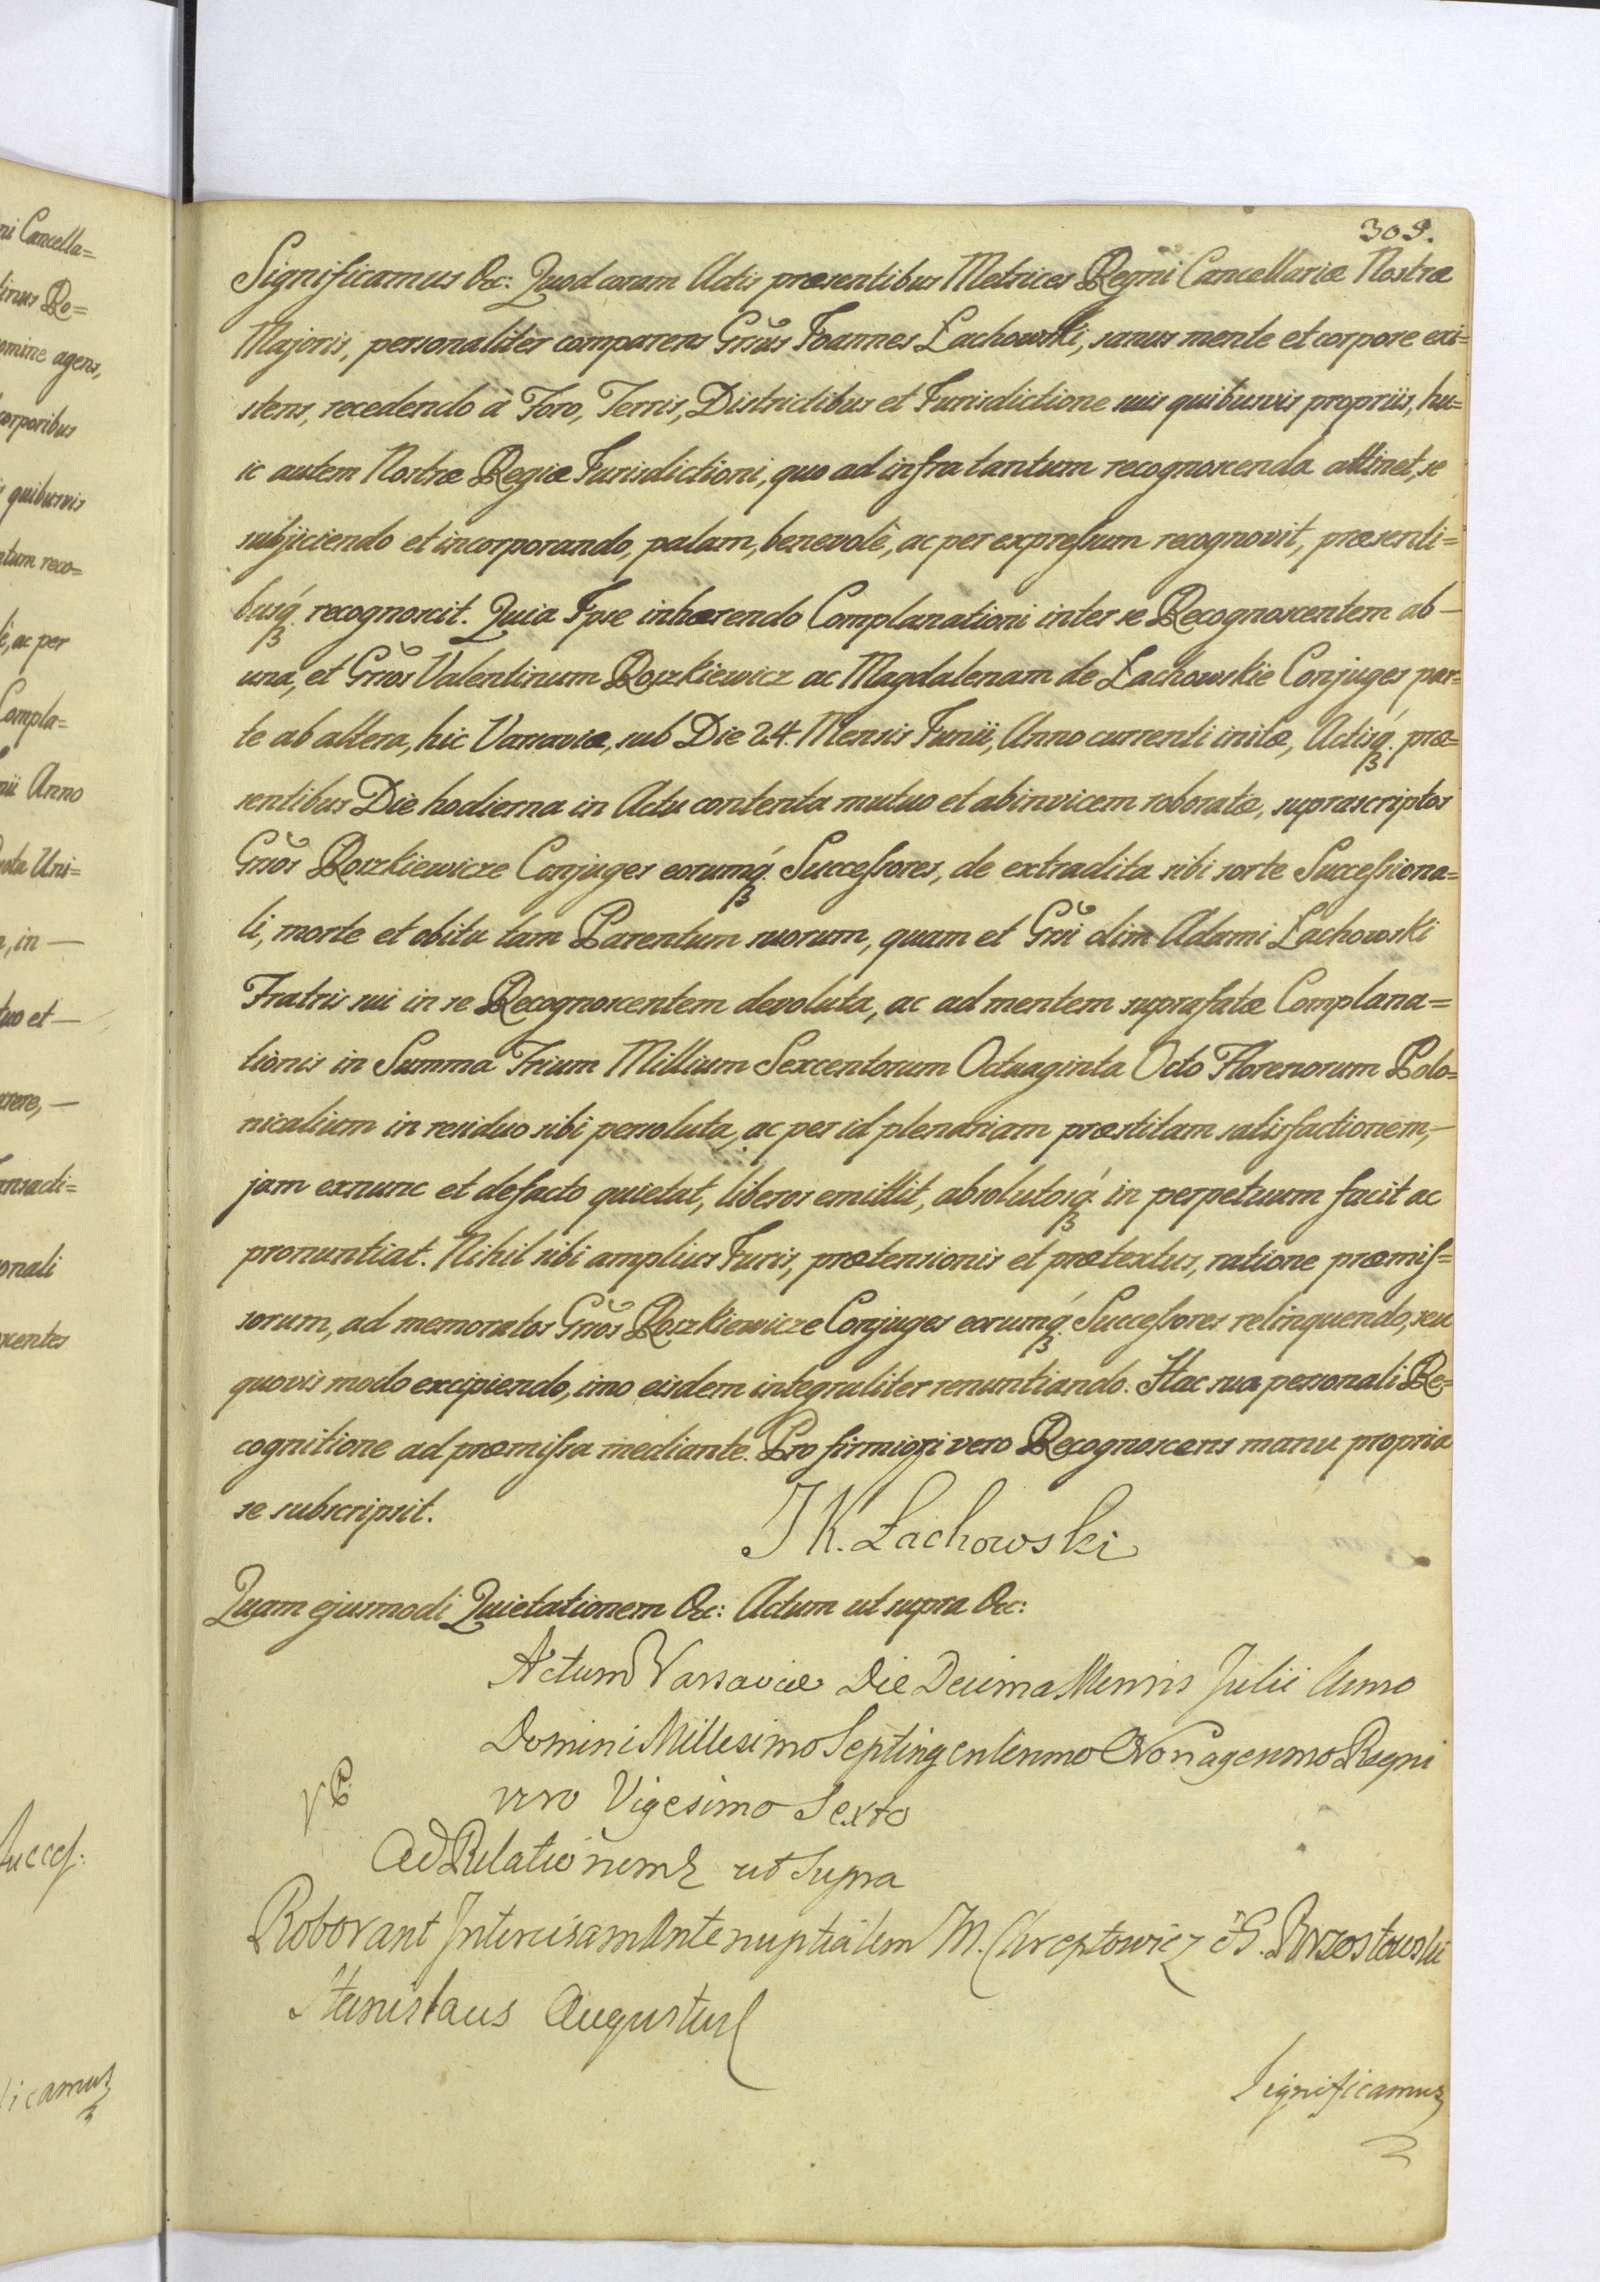 309.
Significamus &c: Quod coram Actis præsentibus Metrices Regni Cancellariæ Nostræ
Majoris, personaliter comparens Grsus Joannes Łachowski, sanus mente et corpore exi=
stens, recedendo à Foro, Terris, Districtibus et Jurisdictione suis quibusvis propriis, hu=
ic autem Nostræ Regiæ Jurisdictioni, quo ad infra tantum recognoscenda attinet, se
subjiciendo et incorporando, palam, benevolè, ac per expressum recognovit, præsenti=
busq. recognoscit. Quia Ipse inhærendo Complanationi inter se Recognoscentem ab —
una, et Grsos Valentinum Roszkiewicz ac Magdalenam de Łachowskie Conjuges par=
te ab altera, hic Varsaviæ, sub Die 24. Mensis Junii, Anno currenti initæ, Actisq. præ=
sentibus Die hodierna in Actu contenta mutuo et abinvicem roboratæ, suprascriptos
Grsos Roszkiewicze Conjuges eorumq. Successores, de extradita sibi sorte Successiona=
li, morte et obitu tam Parentum suorum, quam et Grsi olim Adami Łachowski
Fratris sui in se Recognoscentem devoluta, ac ad mentem suprafatæ Complana=
tionis in Summa Trium Millium Sexcentorum Octuaginta Octo Florenorum Polo=
nicalium in residuo sibi persoluta, ac per id plenariam præstitam satisfactionem, —
jam exnunc et defacto quietat, liberos emittit, absolutosq. in perpetuum facit ac
pronuntiat. Nihil sibi amplius Juris, prætensionis et prætextus, ratione præmis=
sorum, ad memoratos Grsos Roszkiewicze Conjuges eorumq. Successores relinquendo, seu
quovis modo excipiendo, imo eisdem integraliter renuntiando. Hac sua personali Re=
cognitione ad præmissa mediante. Pro firmiori vero Recognoscens manu propria
se subscripsit.
J K. Łachowski
Quam ejusmodi Quietationem &c: Actum ut supra &c:
Actum Varsaviæ Die Decima Mensis Julii Anno
Domini Millesimo Septingentesimo Nonagesimo Regni
vero Vigesimo Sexto
Ad Relationem ut Supra
Roborant Intercisam Antenuptialem M. Chreptowicz & G. Brzostowski
Stanislaus Augustus
Significamus